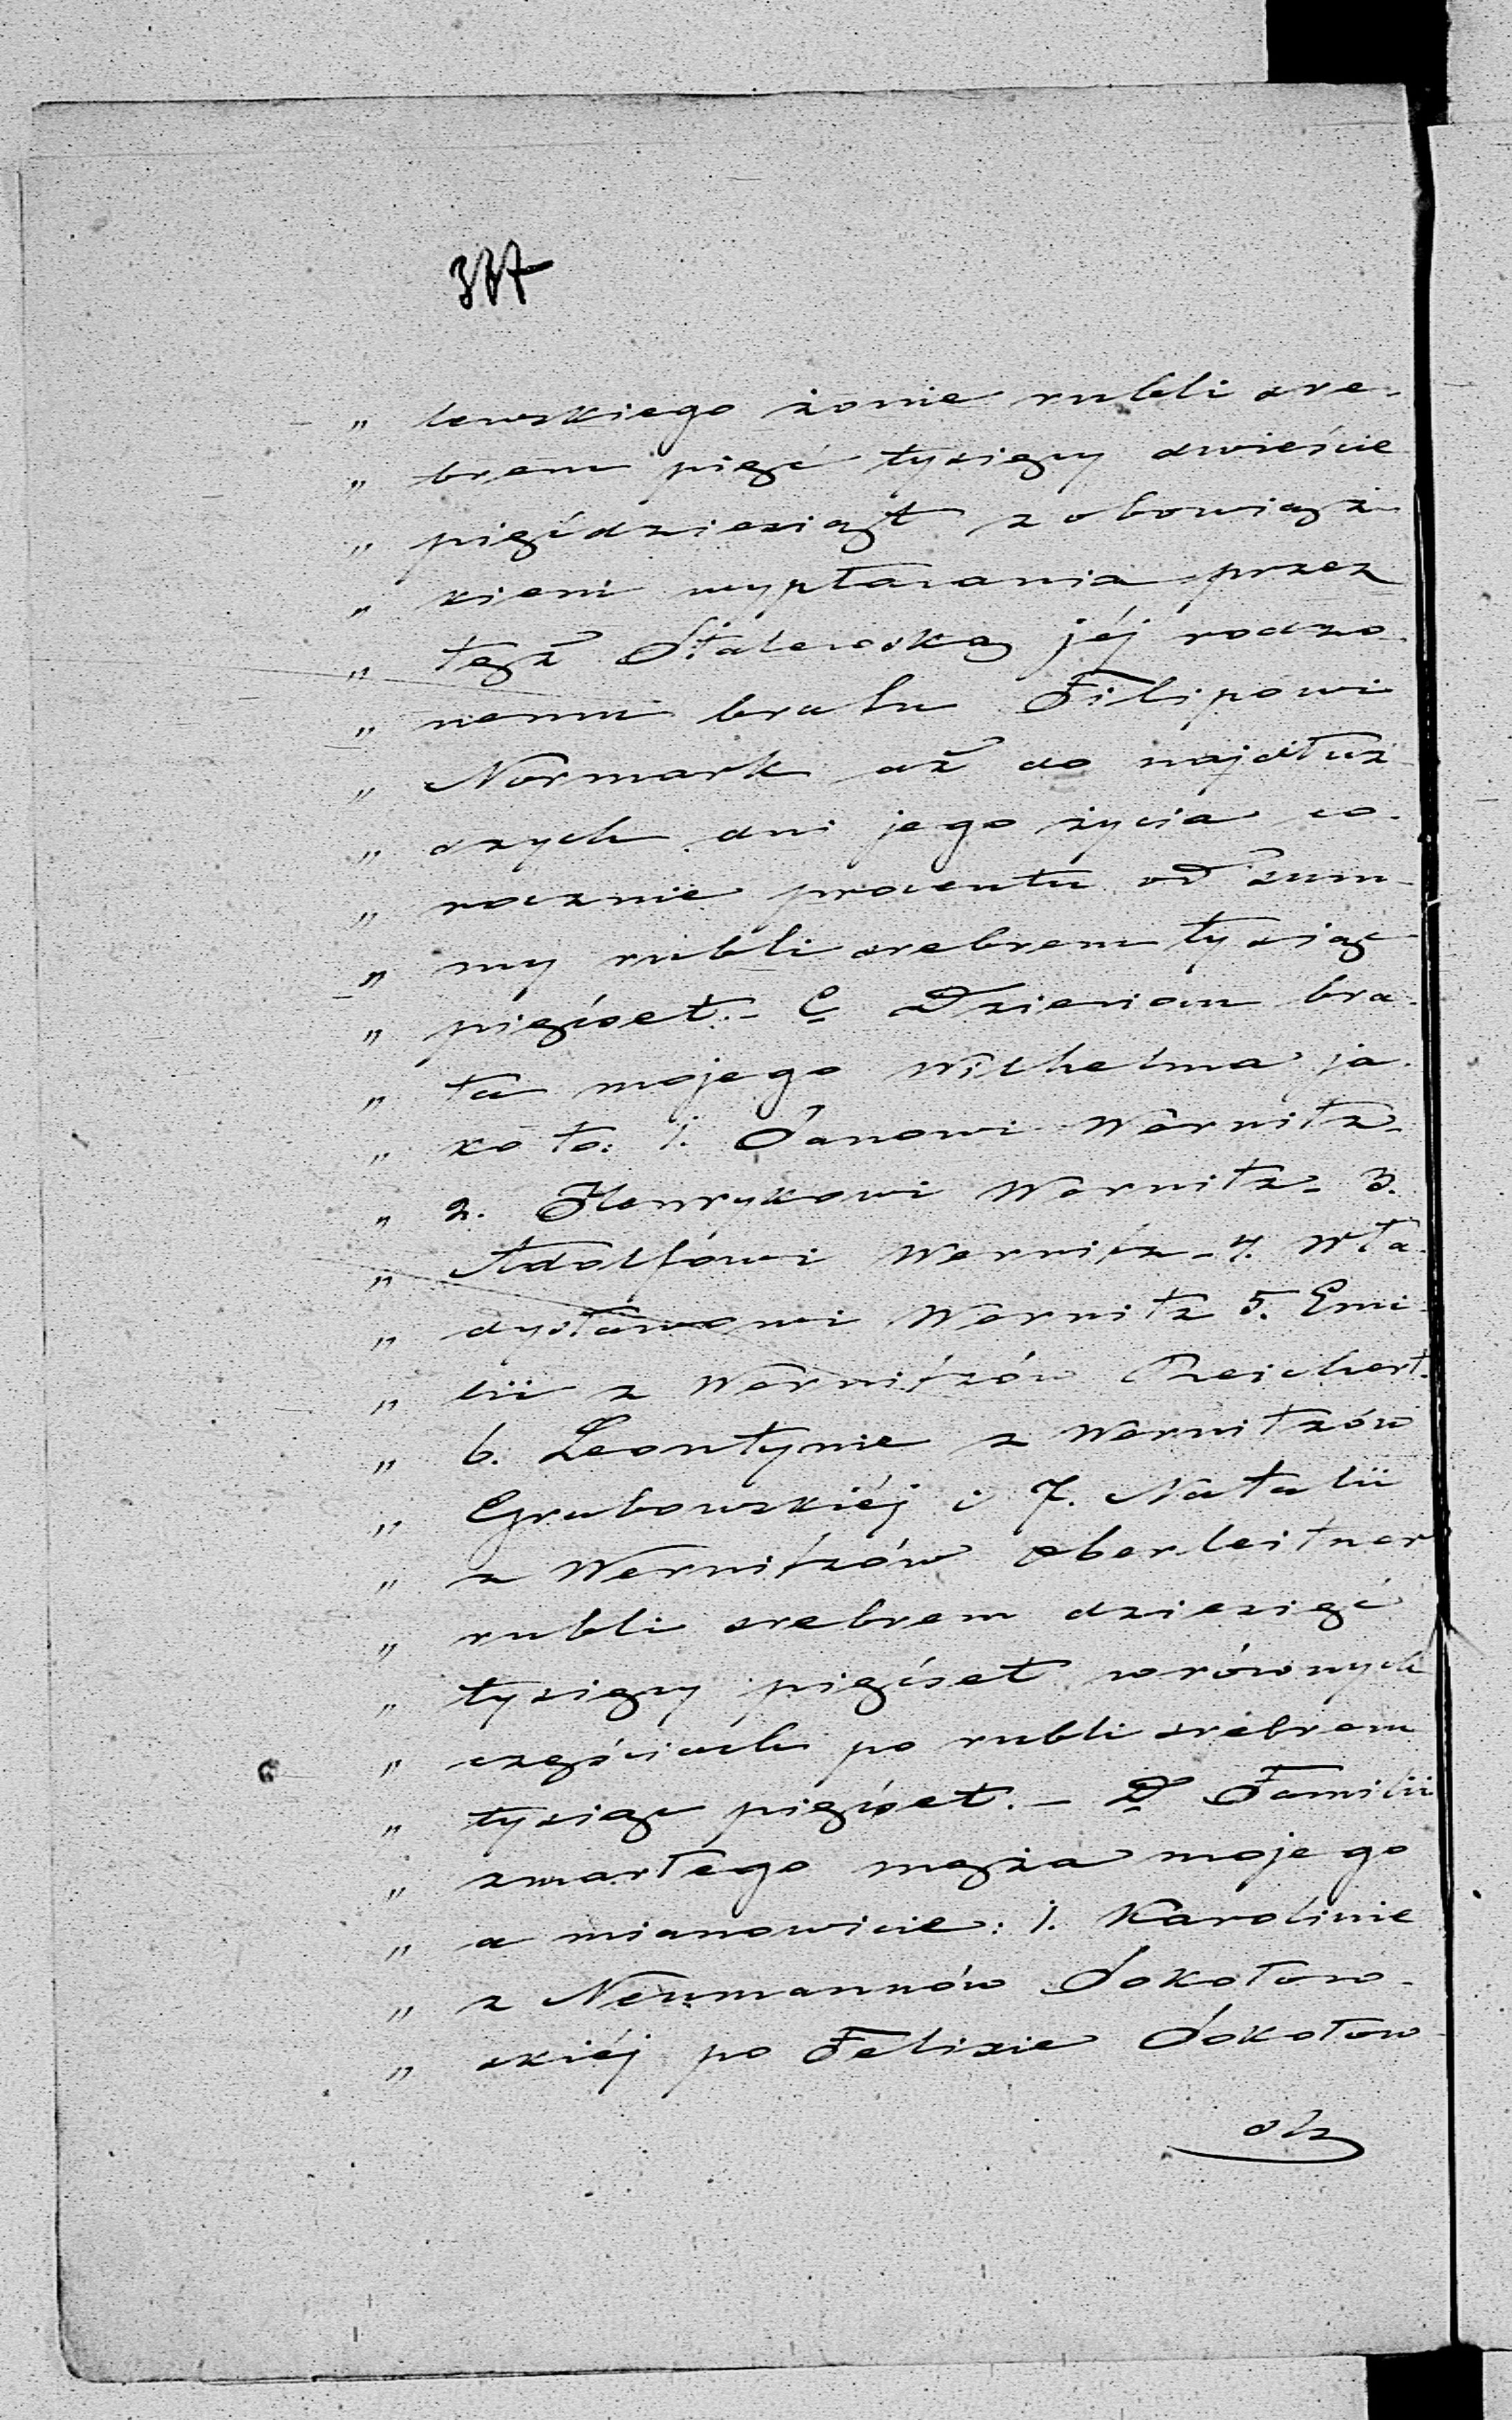 337
„ lewskiego żonie rubli sre-
„ brem pięć tysięcy dwieście
„ pięćdziesiąt z obowiąz-
„ kiem wypłacania przez
„ tęż Stalewską jéj rodzo-
„ nemu bratu Filipowi
„ Normark aż do najdłuż
„ szych dni jego życia co-
„ rocznie procentu od sum-
„ my rubli srebrem tysiąc
„ pięćset.- C Dzieciom bra-
„ ta mojego Wilhelma ja-
„ ko to: 1. Janowi Wernitz-
„ 2. Henrykowi Wernitz- 3.
„ Adolfowi Wernitz- 4. Wła-
„ dysławowi Wernitz 5. Emi-
„ lii z Wernitzów Reichert.
„ 6. Leontynie z Wernitzów
„ Grabowskiéj i 7. Natalii
„ z Wernitzów Oberleitner
„ rubli srebrem dziesięć
„ tysięcy pięćset w równych
„ częściach po rubli srebrem
„ tysiąc pięćset.- D Familii
„ zmarłego męża mojego
„ a mianowicie: 1. Karolinie
„ z Neumannów Sokołow-
„ skiéj po Felixie Sokołow